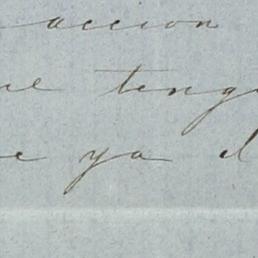 accion
ue teng
e ya d